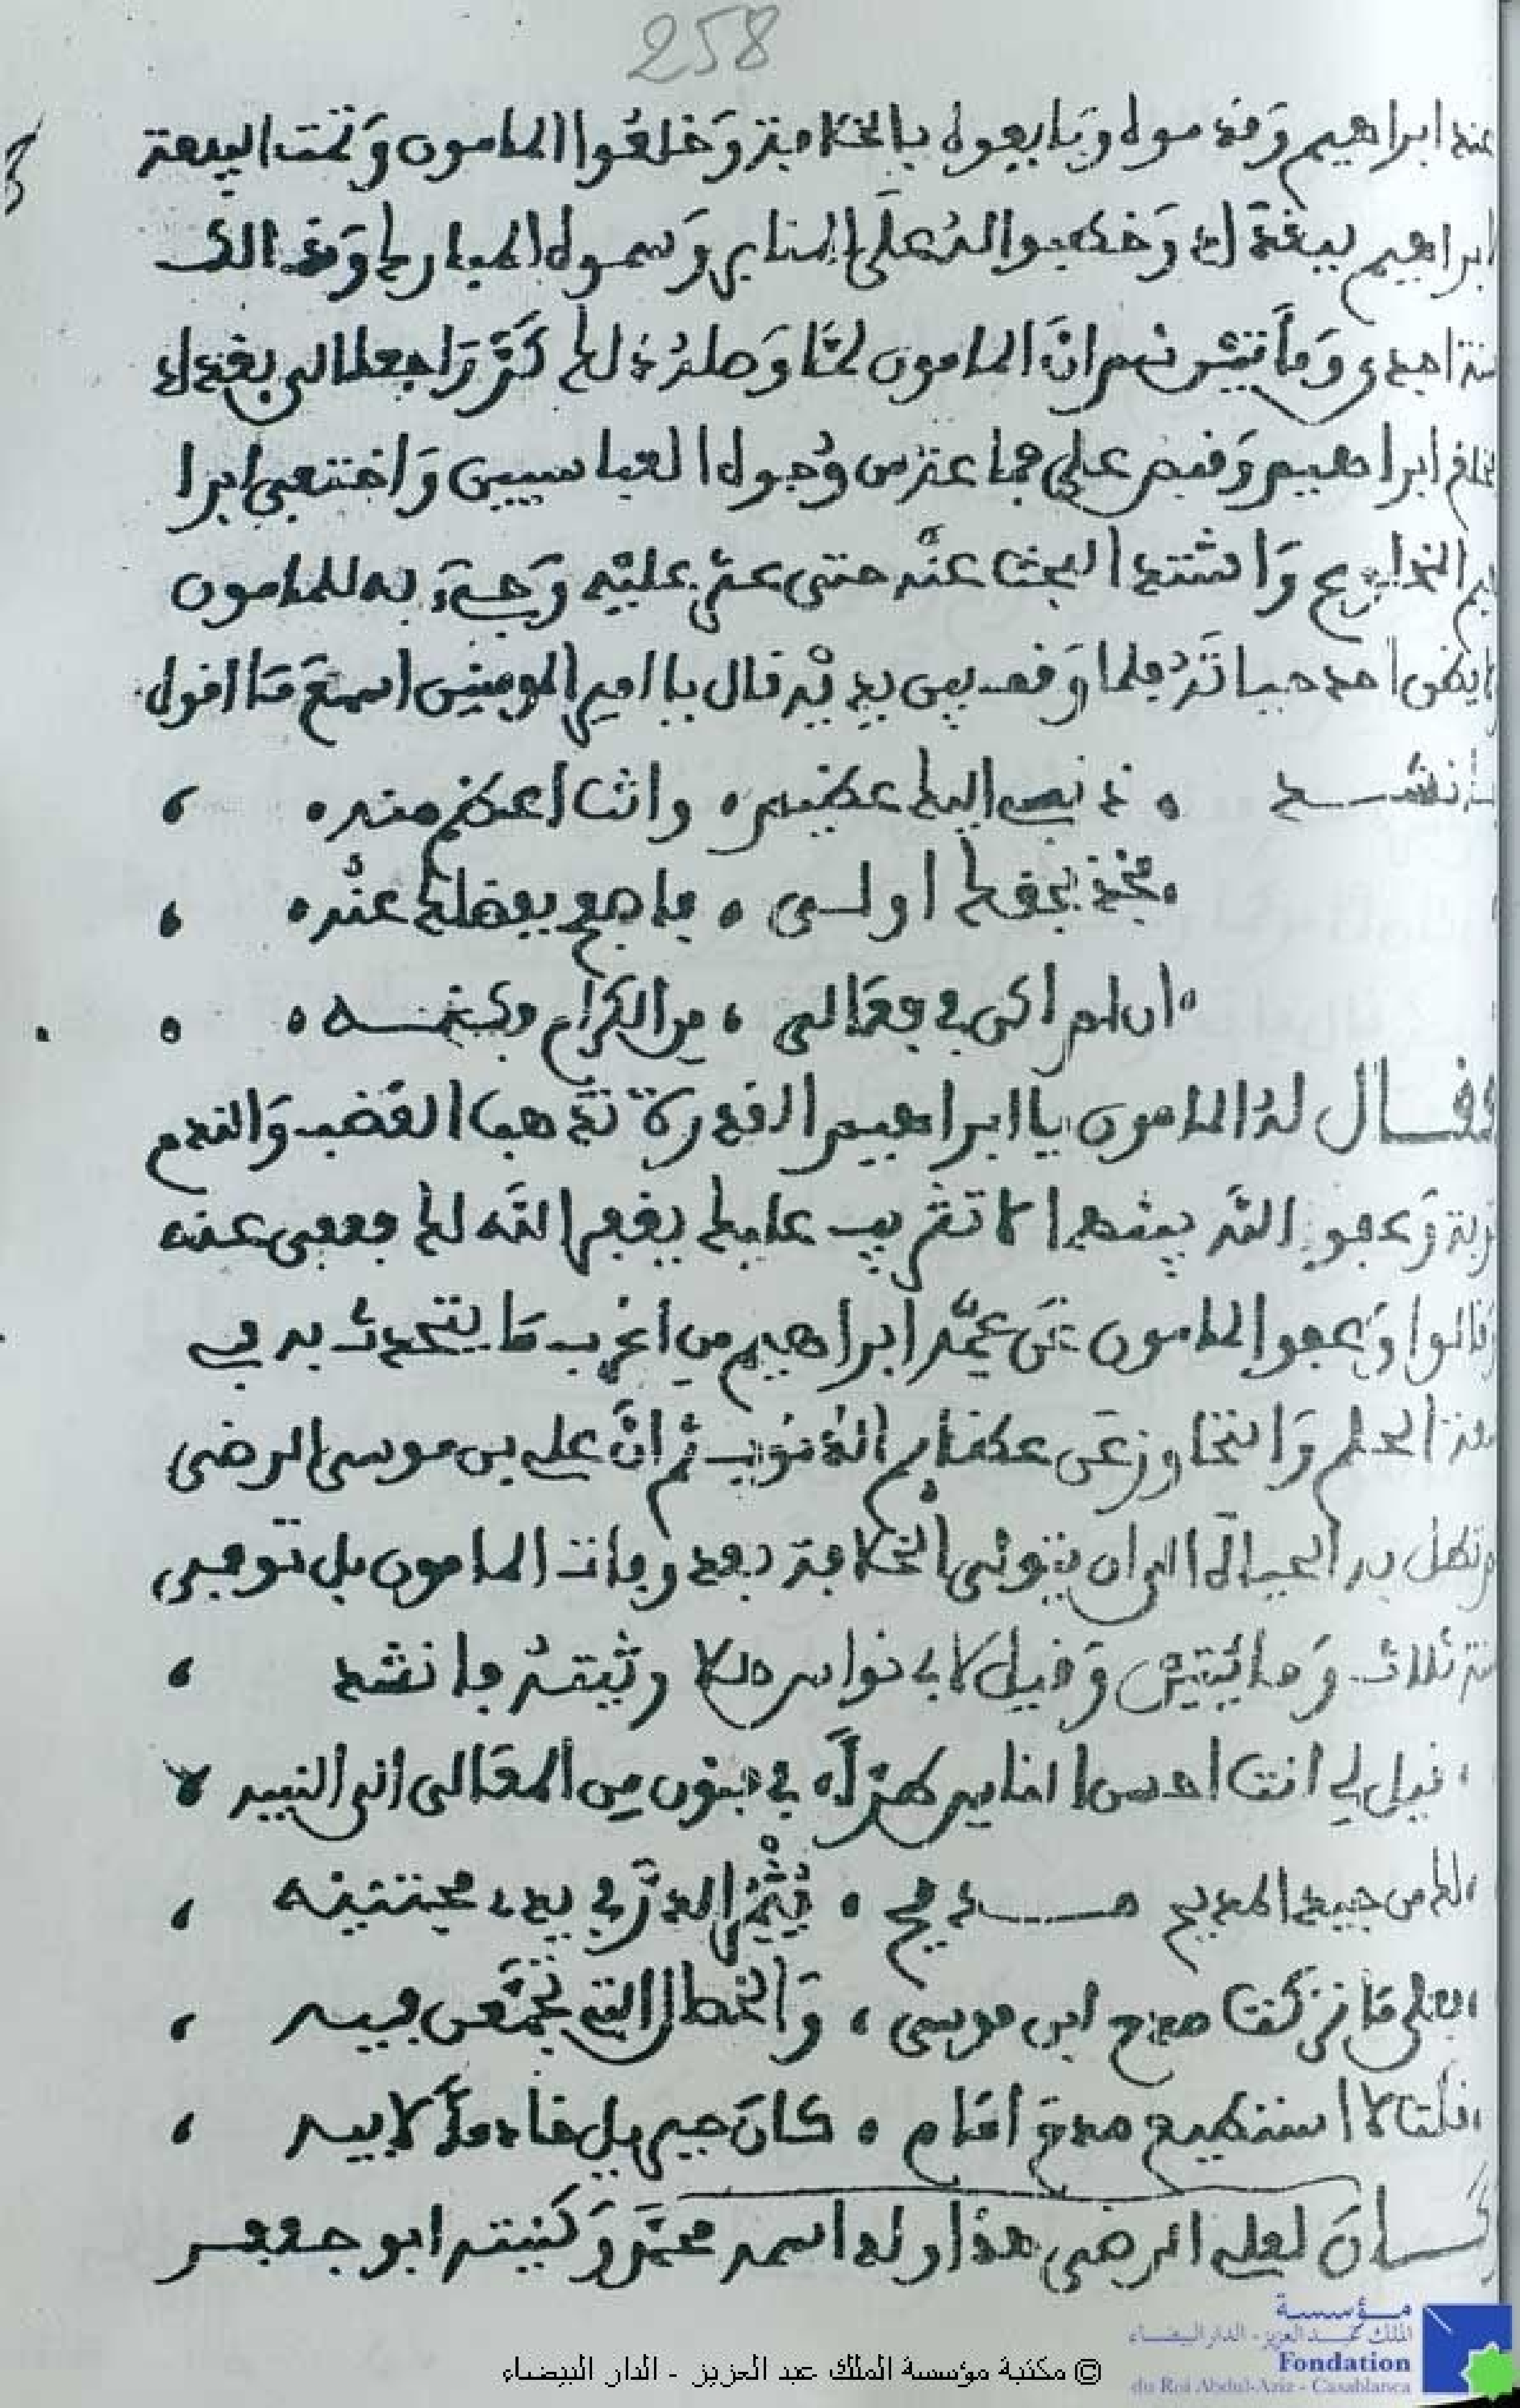 258
عنه ابراهيم وقدموه وبايعوه بالخلافة وخلعوا المامون وتمت البيعة
ابراهيم ببغداد وخطبوا له على المنابر وسموه المبارك وذالك
سنة احدى ومأتين ثم ان المامون لما وصله ذلك كر راجعا الى بغداد
فخلع ابراهيم وقبض على جماعة من وجوه العباسيين واختفى ابرا
هيم واشتد البحث عنه حتى عثر عليه وجيء به للمامون
لا يظن احد حياته فلما وقف بين يديه قال يا امير المومنين اسمع ما اقول
فانشد ذنبي اليك عظيم وانت اعظم منه
فخذ بحقك اولى فاصفح بفضلك عنه
ان لم اكن في فعالي من الكرام فكنه
فقال له المامون يا ابراهيم القدرة تذهب الغضب والندم
توبة وعفو الله بينهما لا تثريب عليك يغفر الله لك فعفى عنه
قالوا وعفو المامون عن عمه ابراهيم من اغرب ما يتحدث به في
الحلم والتجاوز عن عظائم الذنوب ثم ان علي بن موسى الرضى
لم تطل به الحياة الى ان يتولى الخلافة بعد وفات المامون بل توفي
سنة ثلاث ومايتين وقيل لابي نواس هلا رثيته فانشد
قيل لي انت احسن الناس طرا في فنون من المقال النبيه
لك من جيد المديح مديح يثمر الدر في يد مجتنيه
فعلى ما تركت مدح ابن موسى والخصال التي تجمعن فيه
قلت لا استطيع مدح امام كان جبريل خادما لابيه
كان لعلي الرضى هذا ولد اسمه محمد وكنيته ابو جعفر
مؤسسة
الملك عبد العزيز - الدار البيضاء
Fondation
du Roi Abdul-Aziz - Casablanca
© مكتبة مؤسسة الملك عبد العزيز - الدار البيضاء